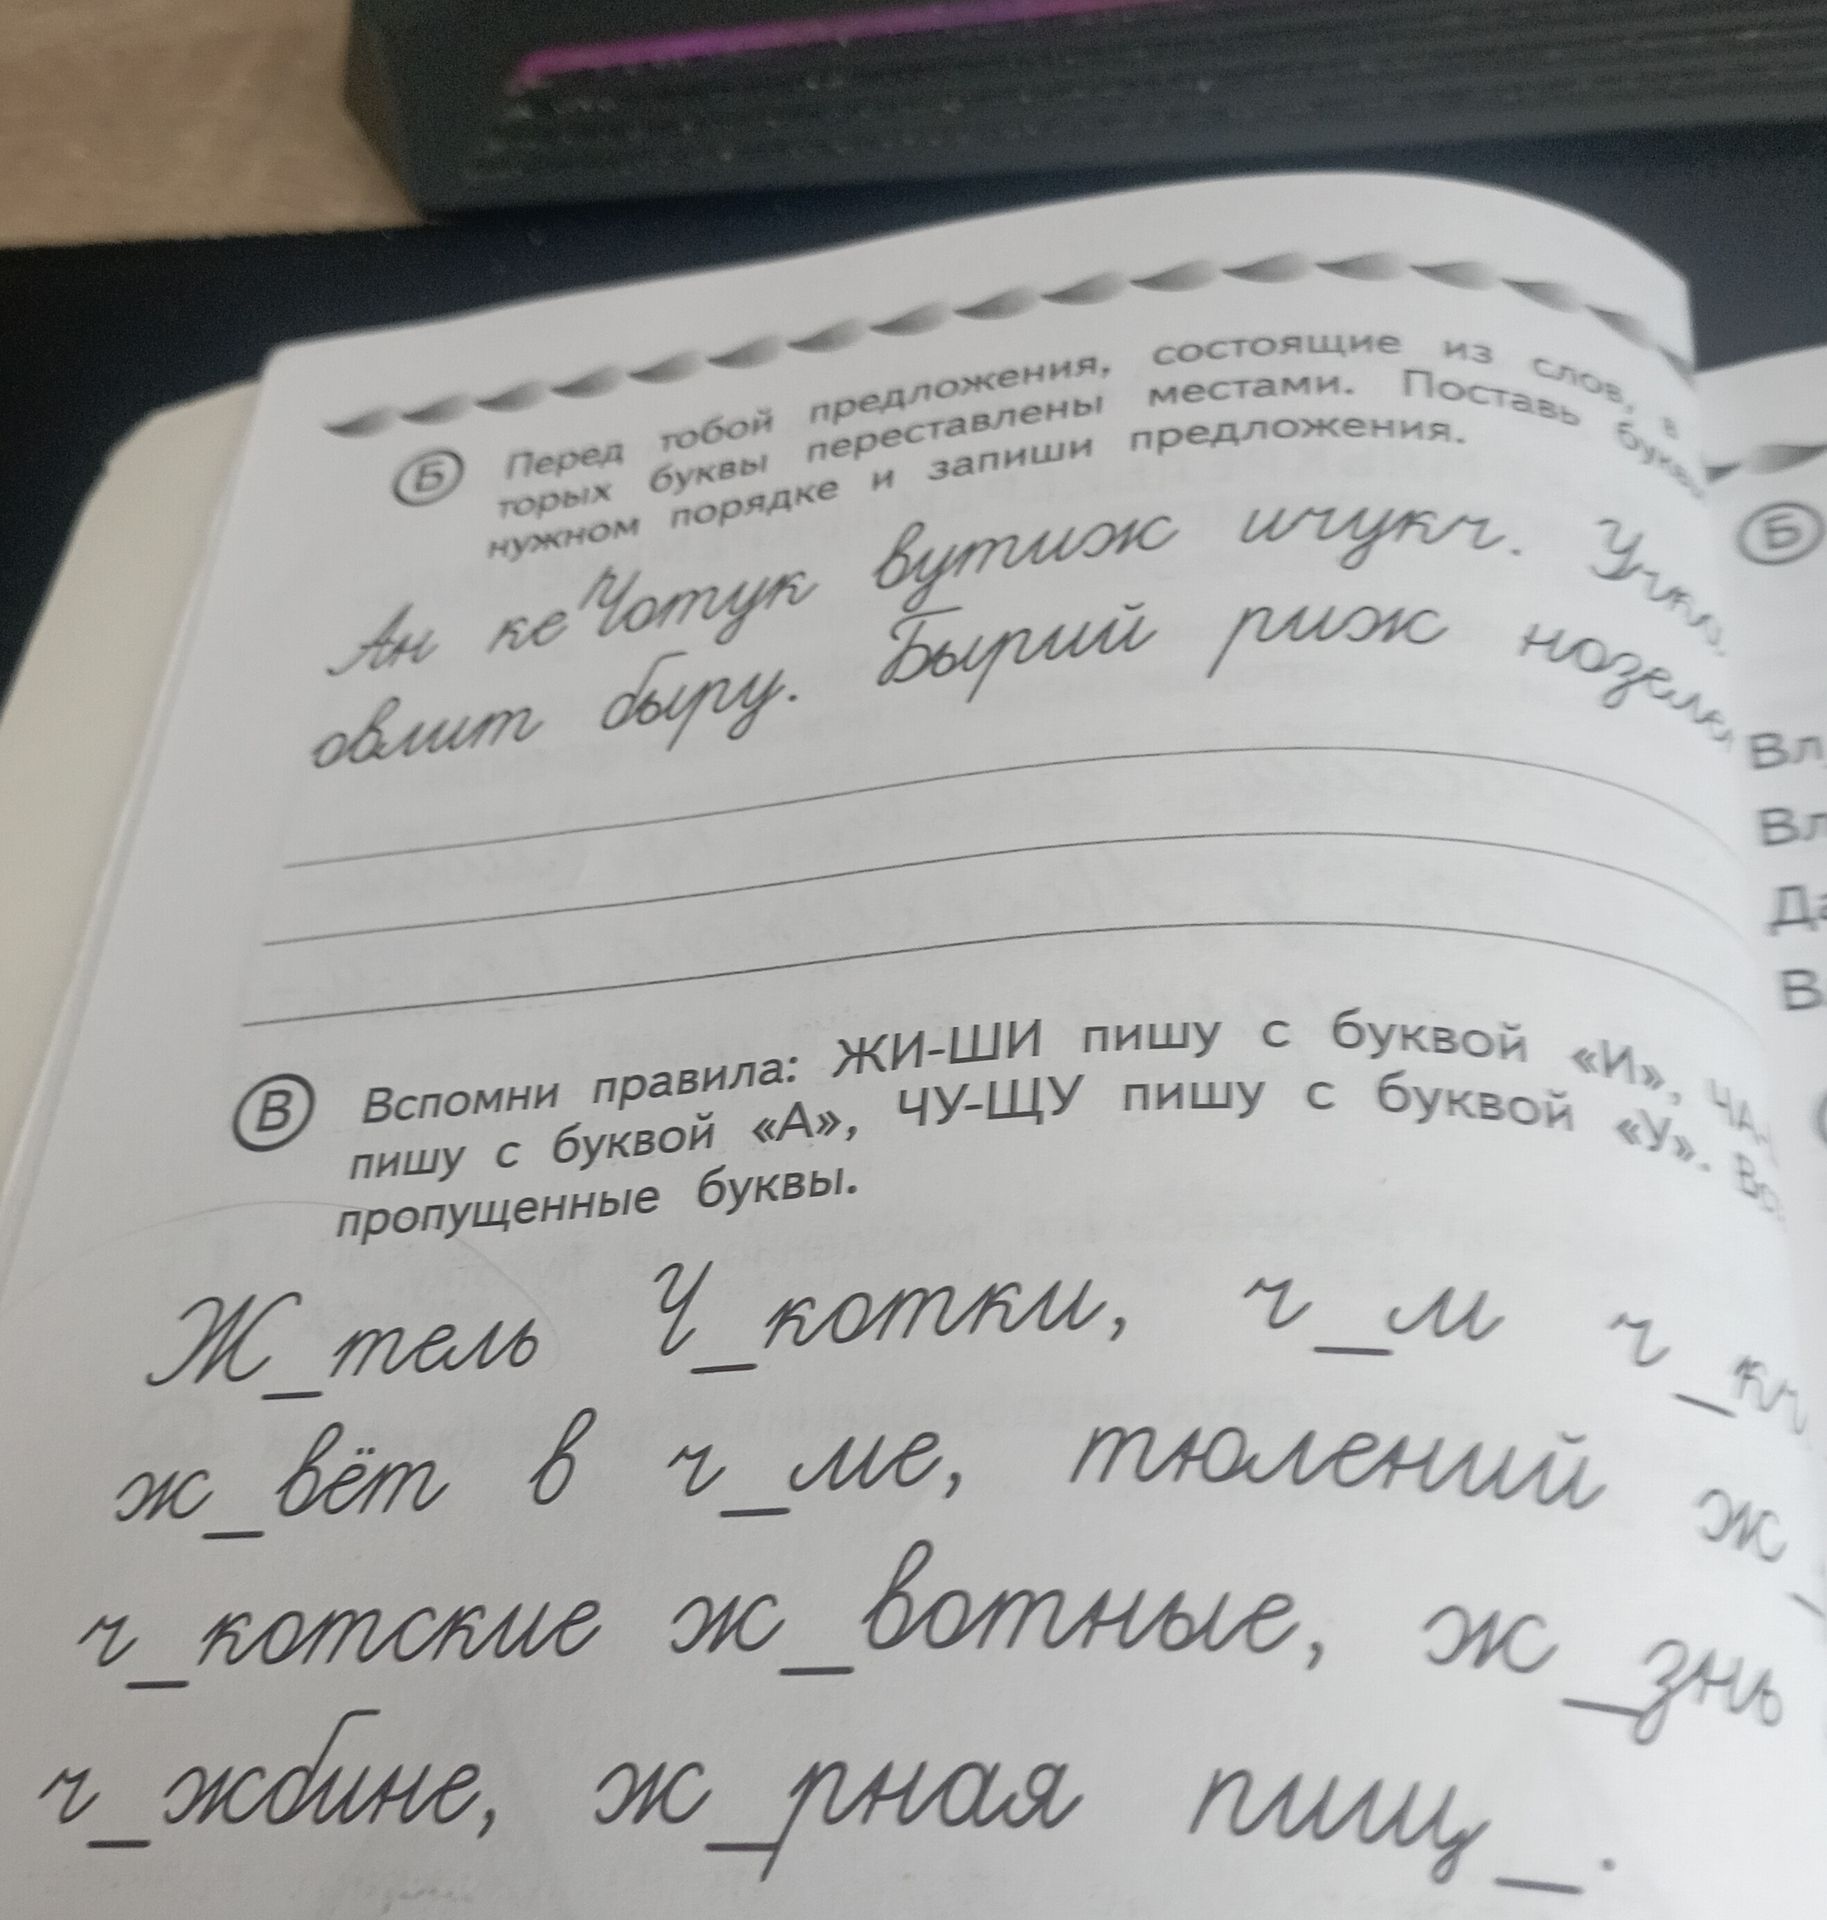 Б Перед тобой предложения, состоящие из слов, в
торых буквы переставлены местами. Поставь буквы
нужном порядке и запиши предложения.
Ан кеЧотук вутиж ичукч.
овлит быру. Бырий риж
В Вспомни правила: ЖИ-ШИ пишу с буквой «И», ЧА-
пишу с буквой «А», ЧУ-ЩУ пишу с буквой «У».
пропущенные буквы.
Ж_тель Ч_котки, ч_м ч_кч
ж_вёт в ч_ме, тюлений ж_
ч_котские ж_вотные, ж_знь
ч_жбине, ж_рная пищ_.
Б
Вл
Вл
Да
В